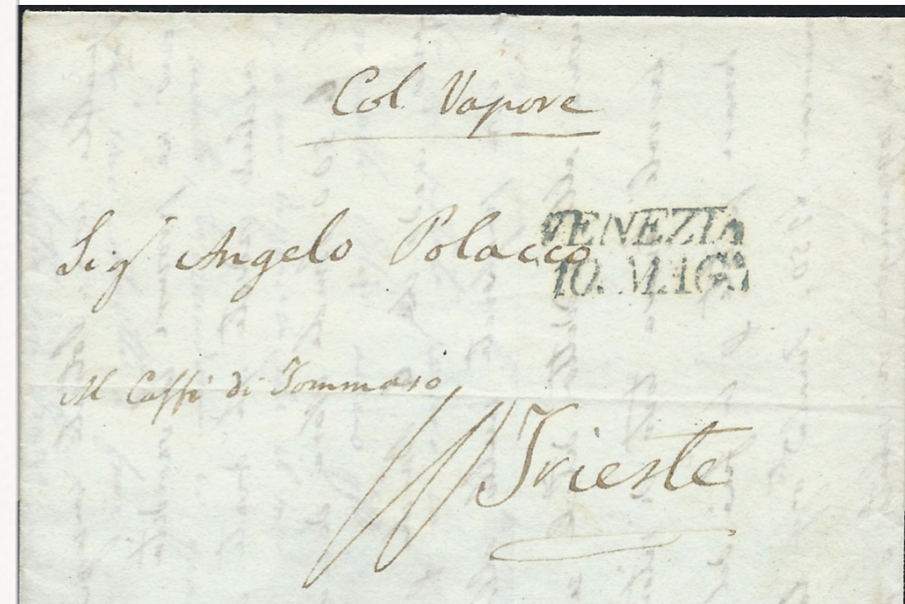 Col Vapore
Sigʳ Angelo Polacco
VENEZIA
10. MAGº
Al Caffè di Tommaso
Trieste